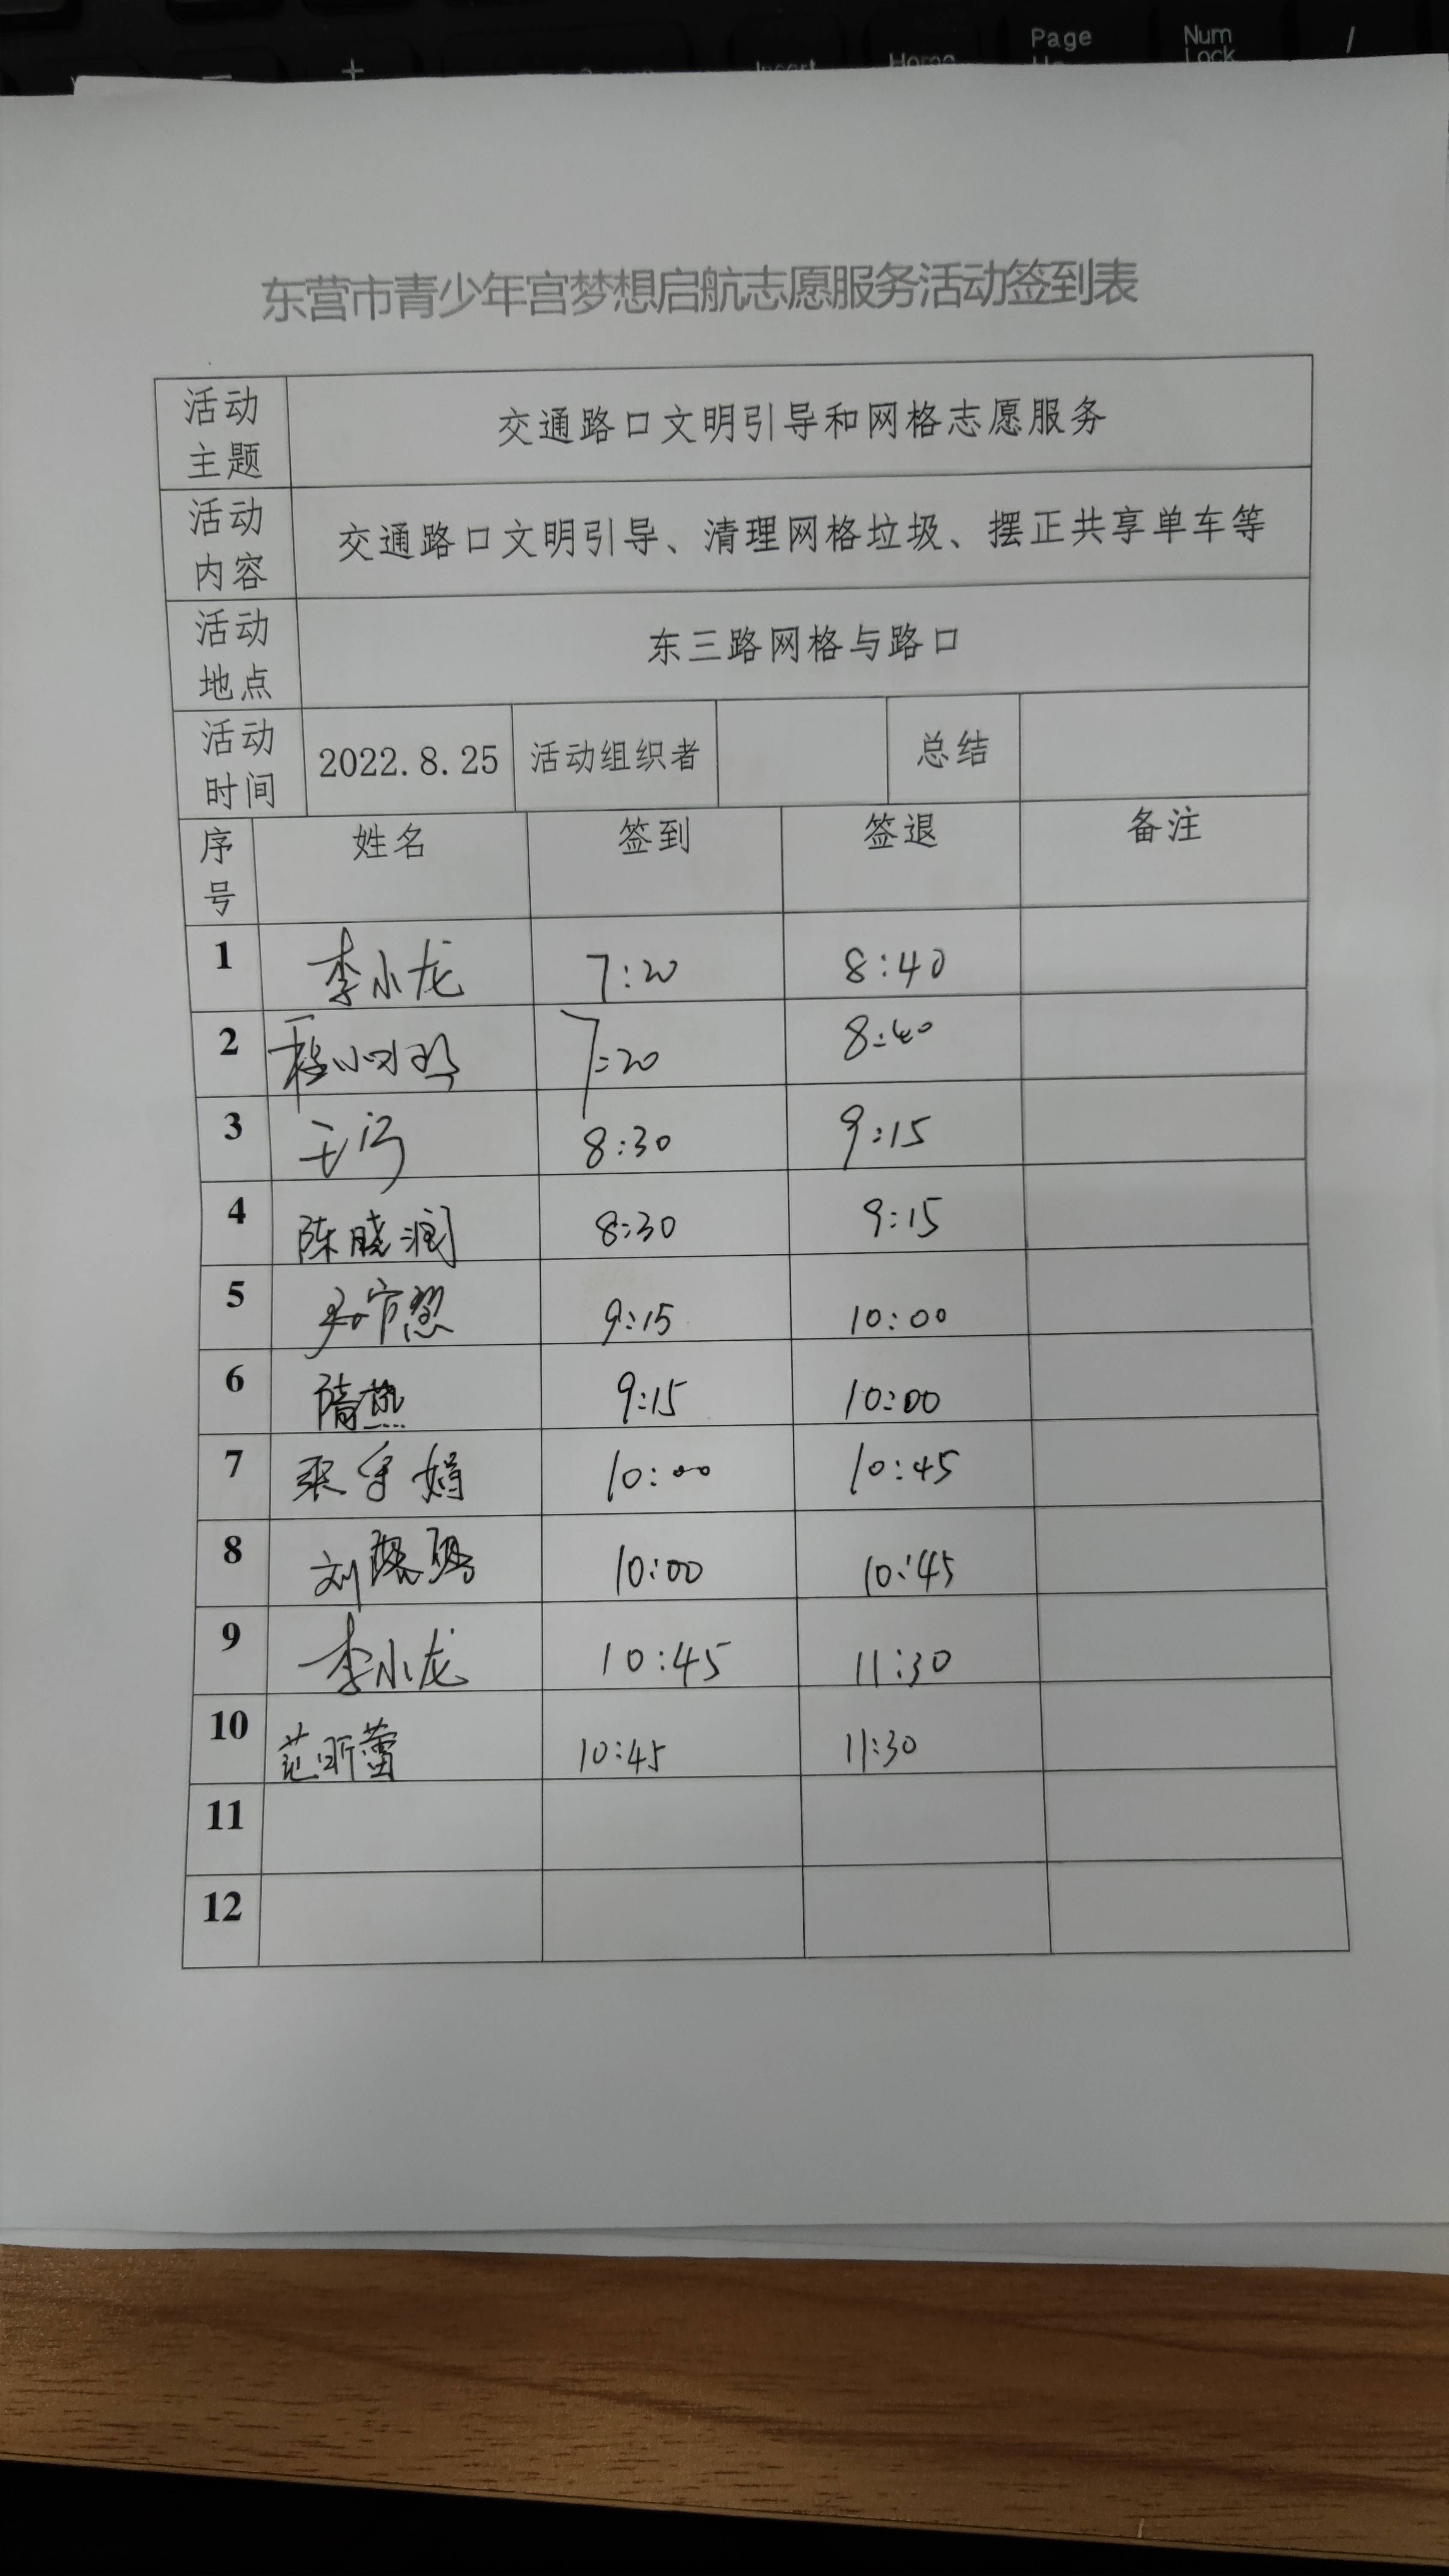 Page
Num
Lock
/
+
Insert
Home
东营市青少年宫梦想启航志愿服务活动签到表
活动主题 交通路口文明引导和网格志愿服务
活动内容 交通路口文明引导、清理网格垃圾、摆正共享单车等
活动地点 东三路网格与路口
活动时间 2022.8.25 活动组织者 总结
序号 姓名 签到 签退 备注
1 李小龙 7:20 8:40
2 7:20 8:40
3 8:30 9:15
4 陈晓润 8:30 9:15
5 9:15 10:00
6 隋燕 9:15 10:00
7 10:00 10:45
8 刘 10:00 10:45
9 李小龙 10:45 11:30
10 范昕蕾 10:45 11:30
11
12